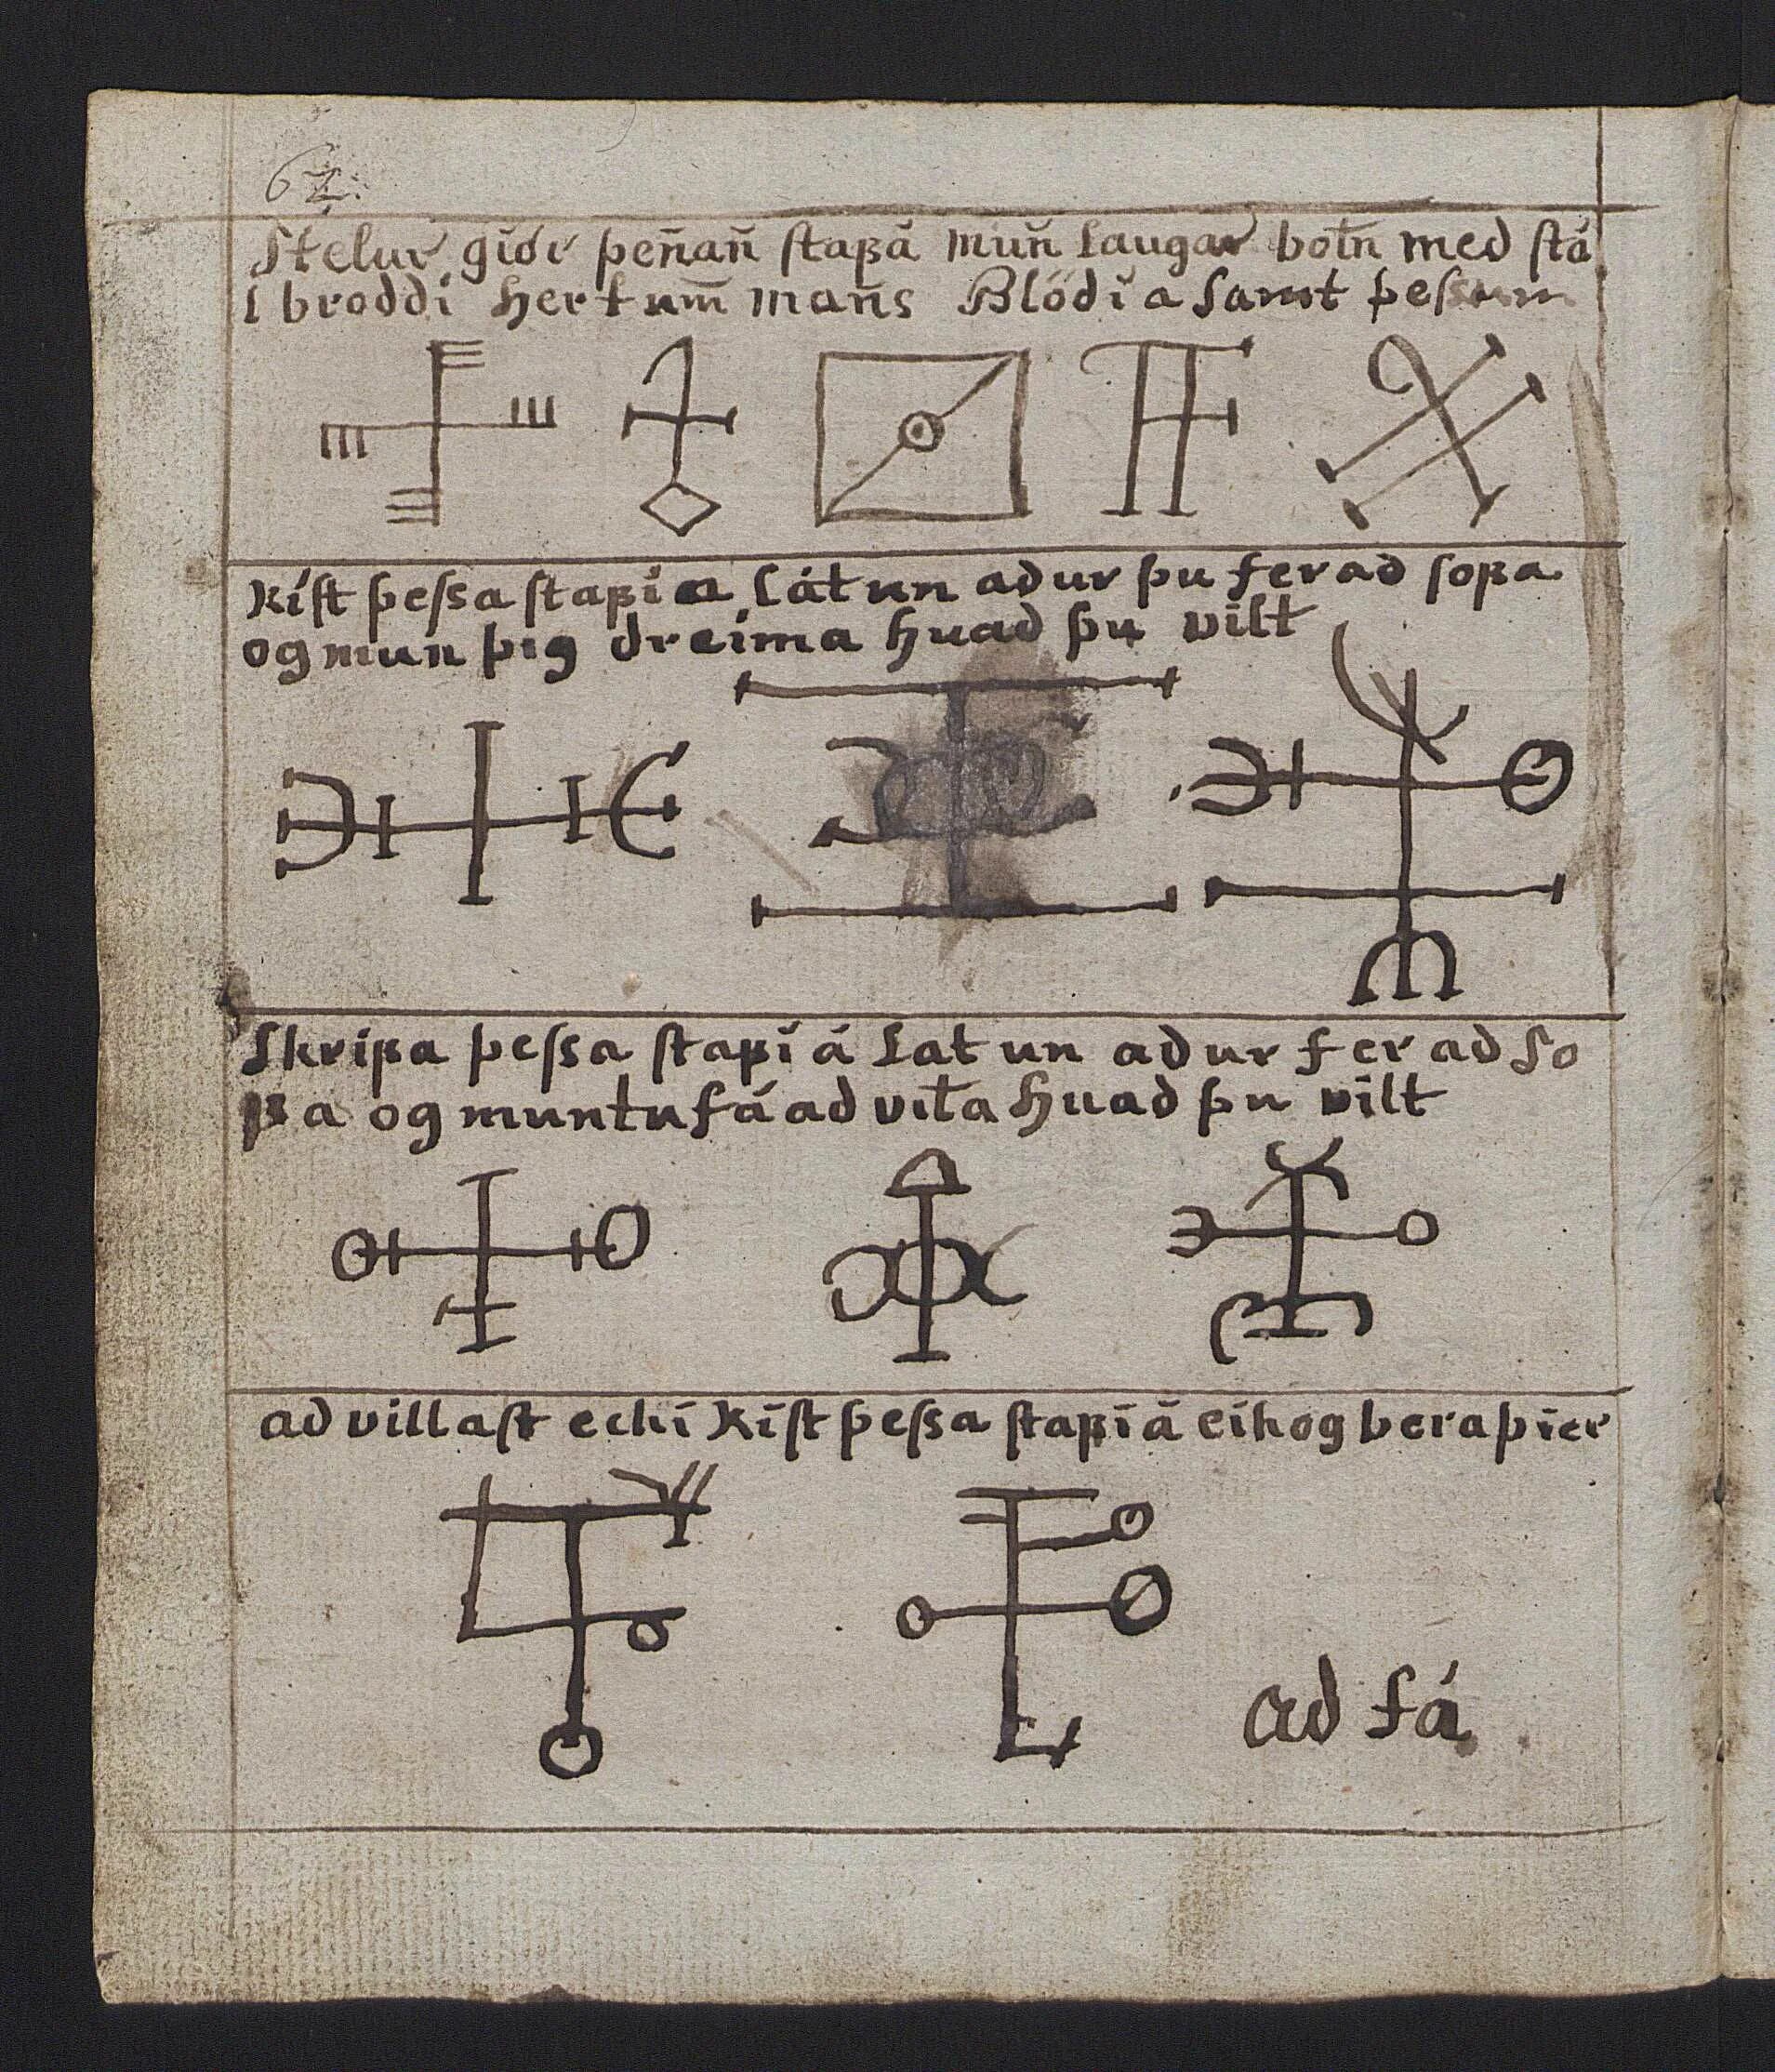 62.
Stelur giór þen̄an̄ stafá mun̄ laugar botn̄ med stá
l broddi hertum̄ man̄s Blödi a samt þessum
Rist þessa stafi a látun adur þu fer ad sofa
og mun þig dreima huad þu vilt
Skrifa þessa stafi á latun adur fer ad so
fa og muntu fá ad vita huad þu vilt
ad villast ecki Rist þessa stafi á eik og bera þier
ad fá